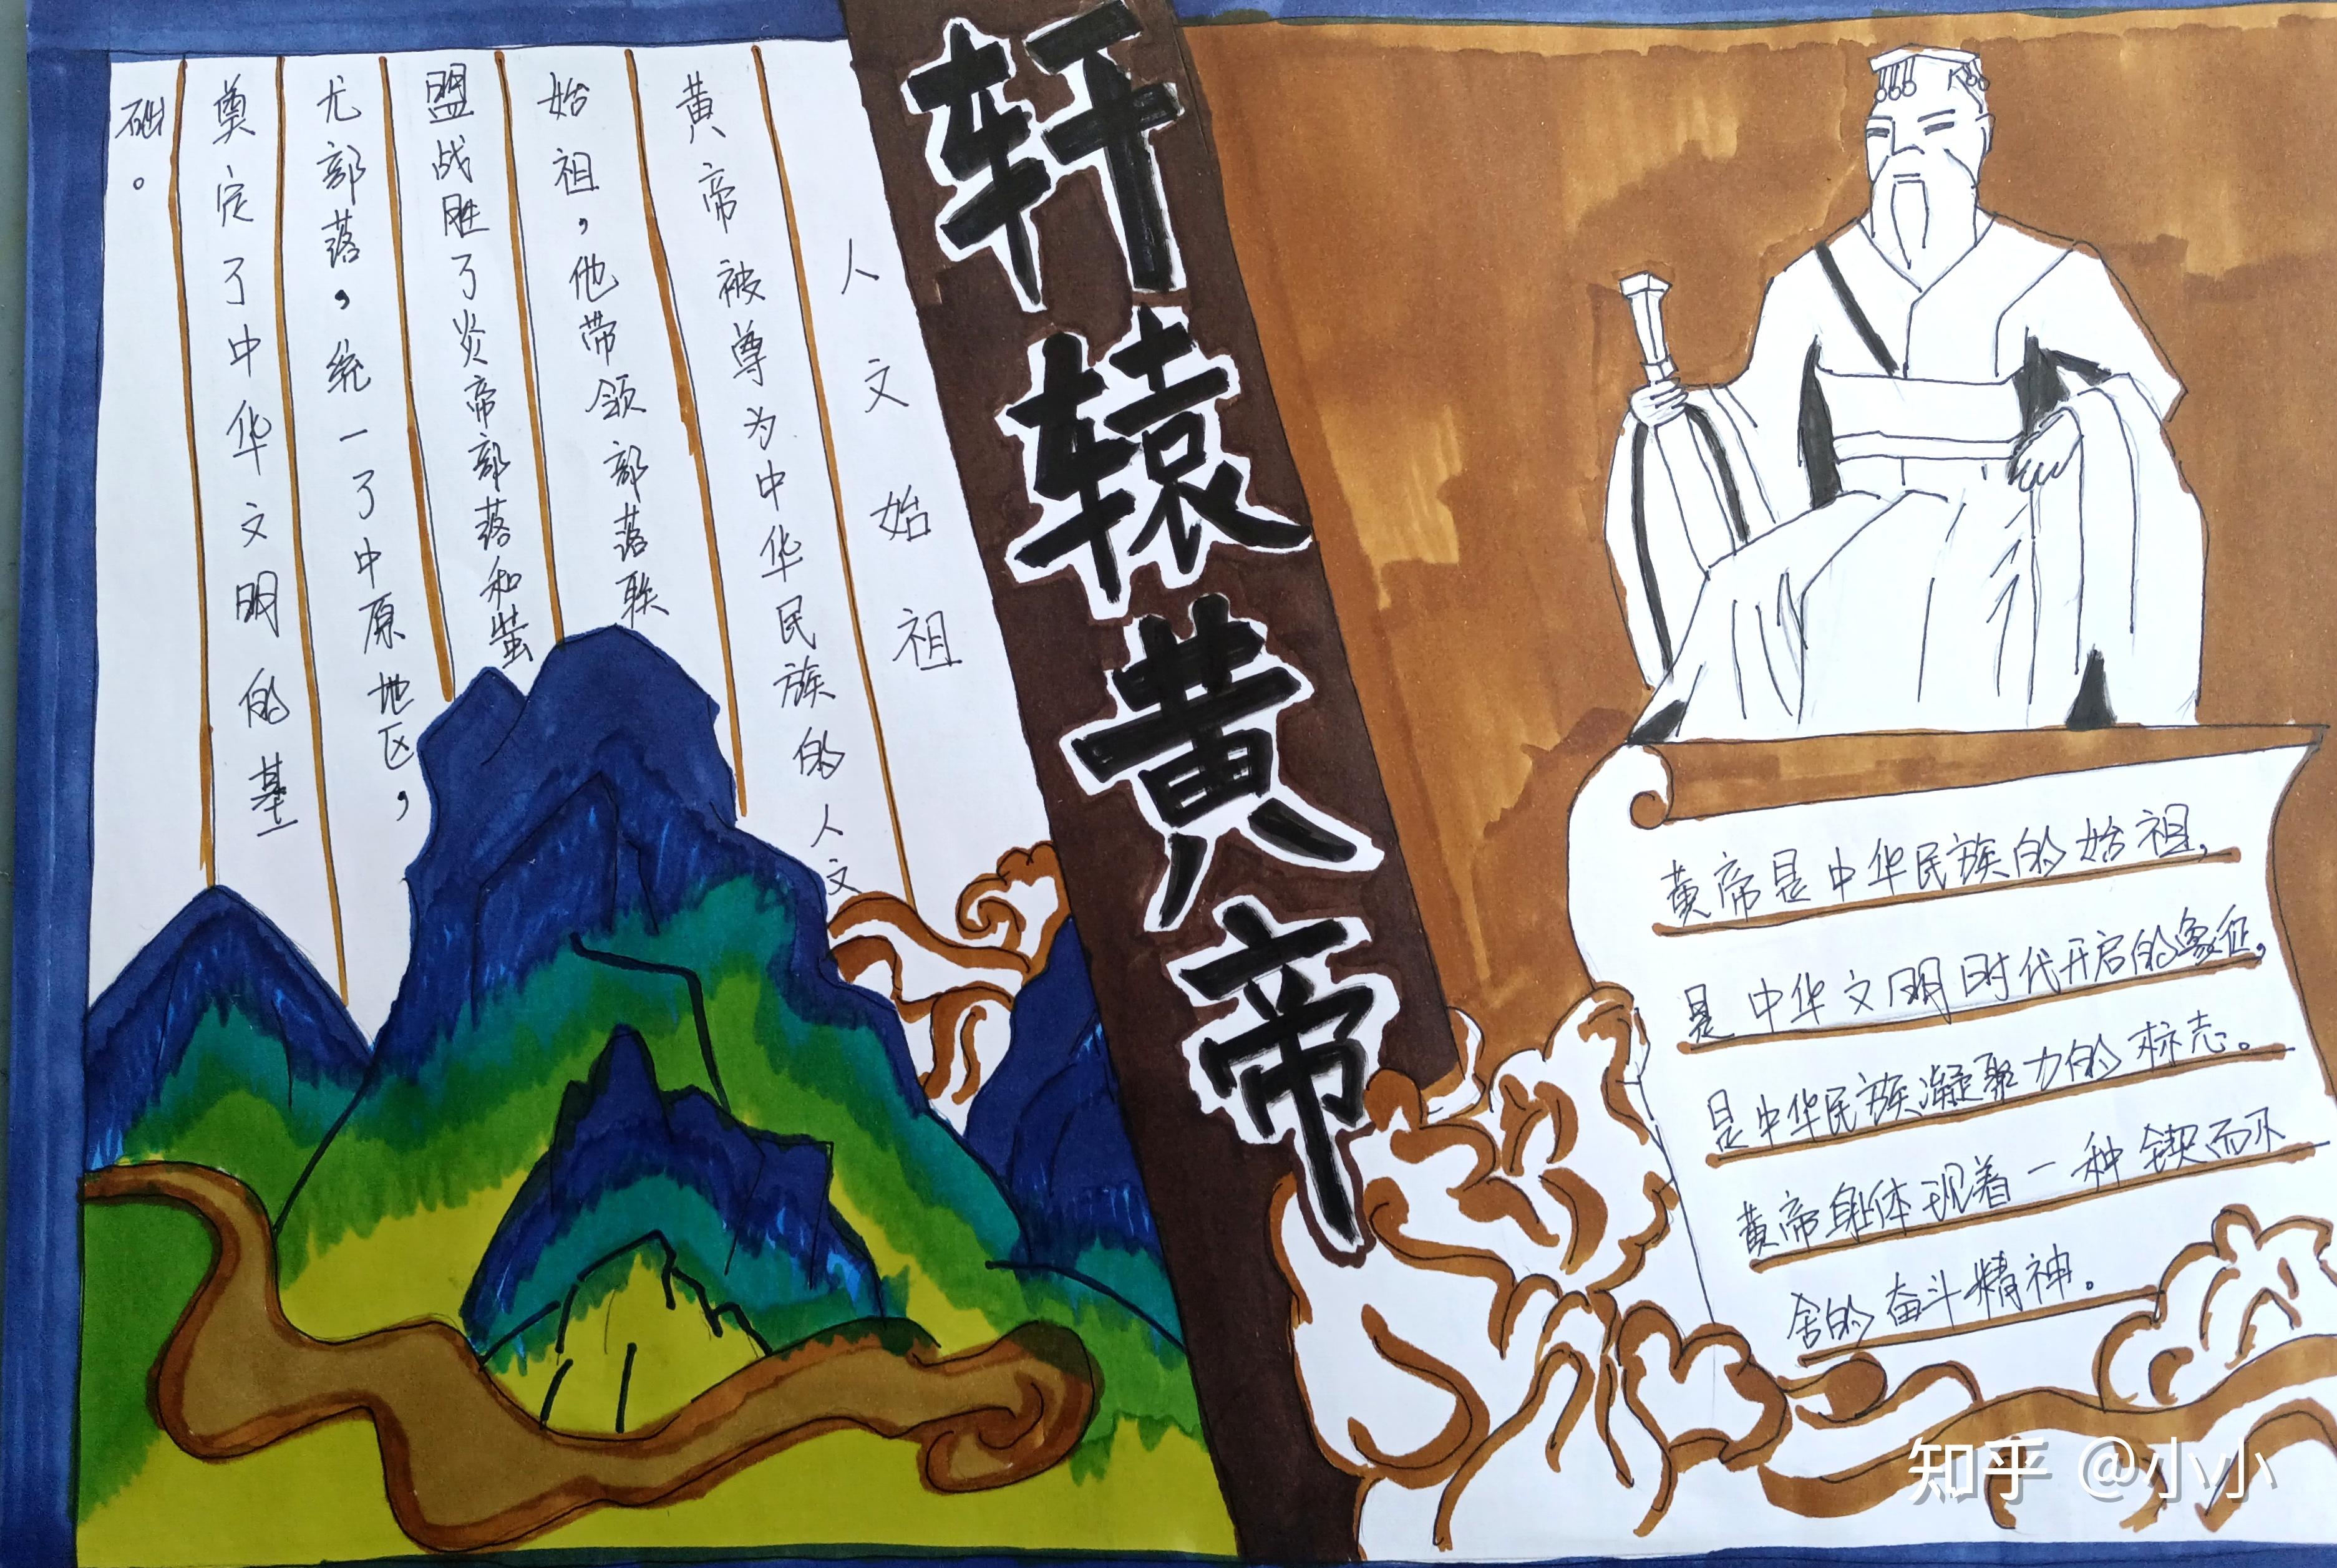 轩辕黄帝
人文始祖
黄帝被尊为中华民族的人文
始祖，他带领部落联
盟战胜了炎帝部落和蚩
尤部落，统一了中原地区，
奠定了中华文明的基
础。
黄帝是中华民族的始祖，
是中华文明时代开启的象征，
是中华民族凝聚力的标志。
黄帝身体现着一种锲而不
舍的奋斗精神。
知乎 @小小